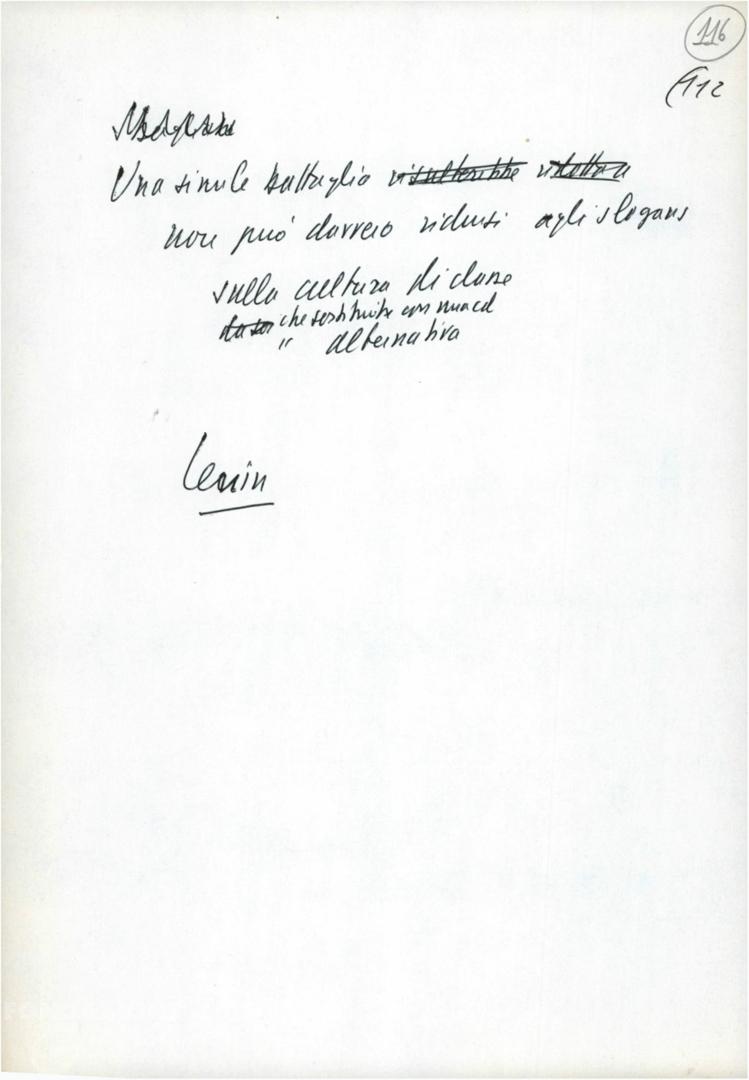 116
112
Una simile battaglia risulterebbe ridotta
non può davvero ridursi agli slogans
sulla cultura di classe
che sostituire con una cul
" alternativa
Lenin